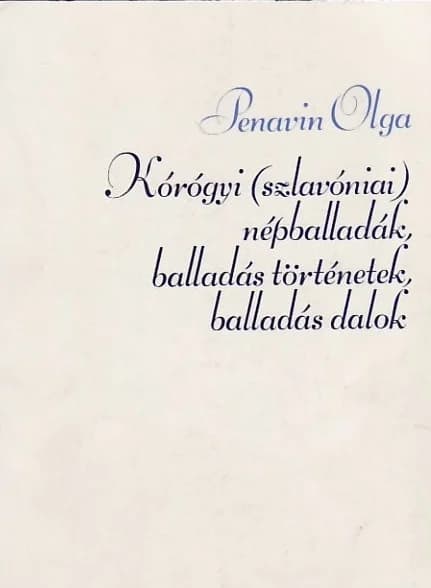 Penavin Olga
Kórógyi (szlavóniai)
népballadák,
balladás történetek,
balladás dalok